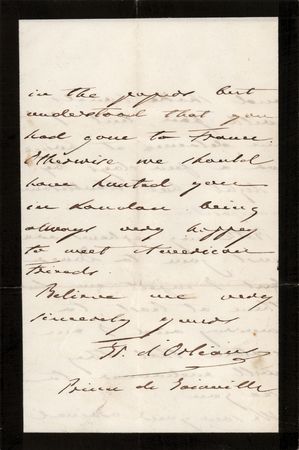 in the papers but
understood that you
had gone to France.
Otherwise we should
have hunted you
in London being
always very happy
to meet American
Friends.
Believe me very
sincerely yours
d'Orléans
Prince de Joinville